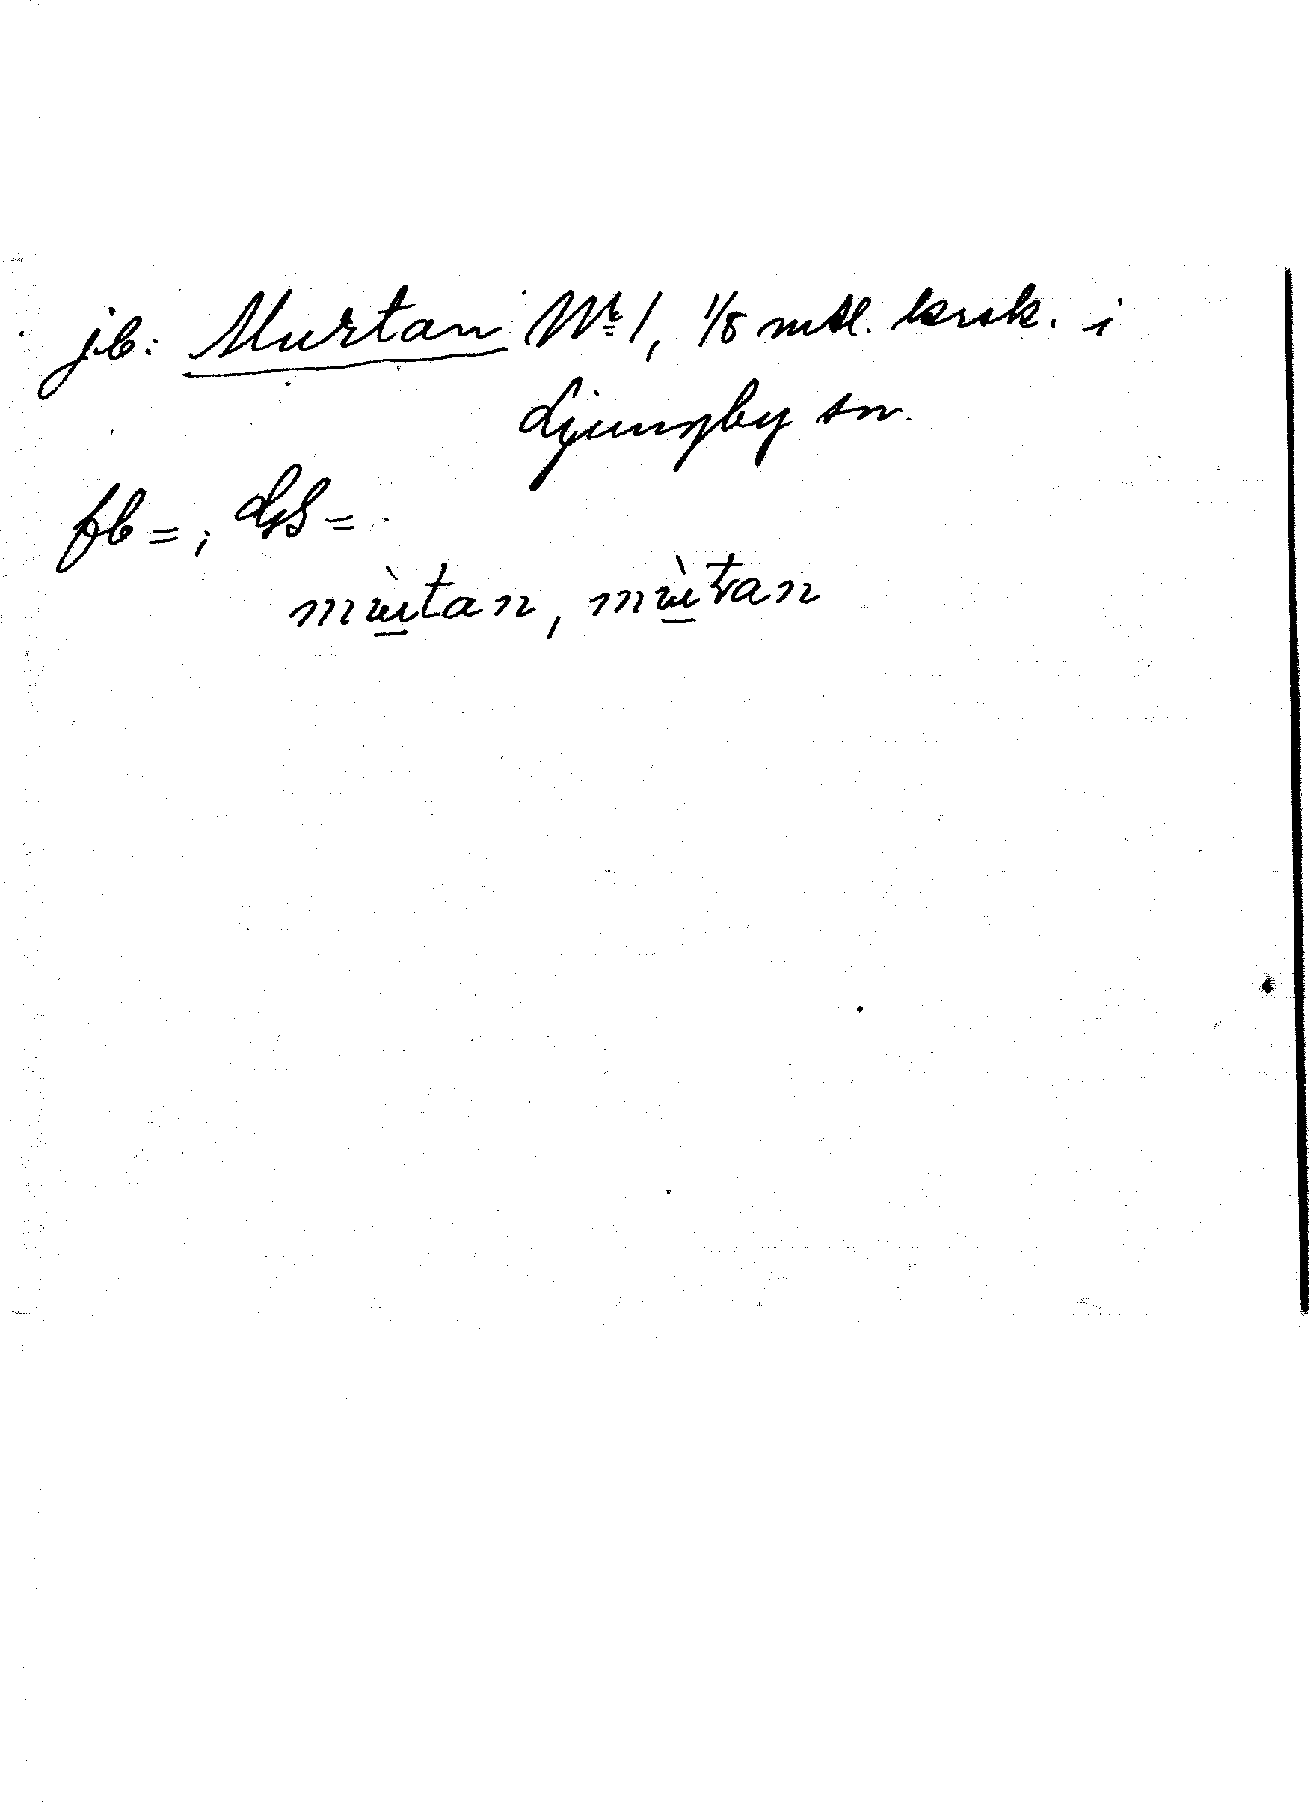 jb: Murtan Nr 1, 1/8 mtl. krsk. i
Ljungby sn.
fb = ; GS =
mùtan, mùtan